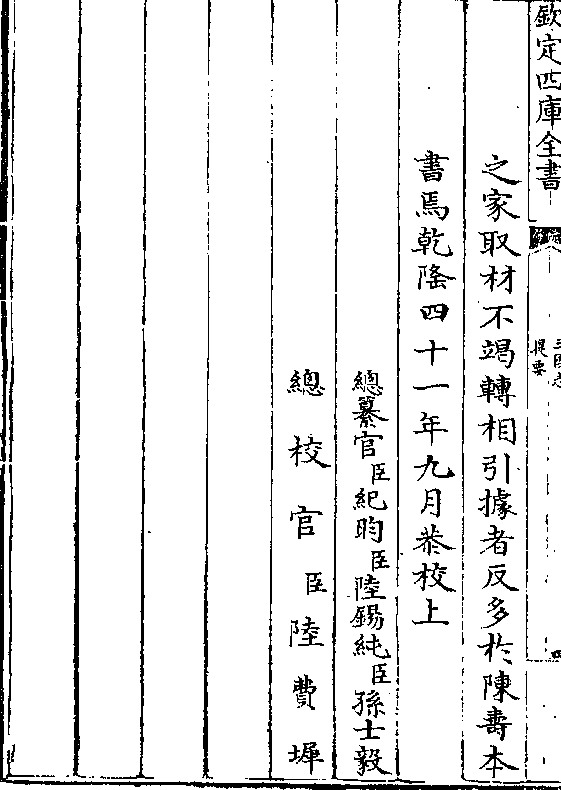 欽定四庫全書
三國志
提要
之家取材不竭轉相引據者反多於陳壽本
書焉乾隆四十一年九月恭校上
總纂官臣紀昀臣陸錫熊臣孫士毅
總校官臣陸費墀